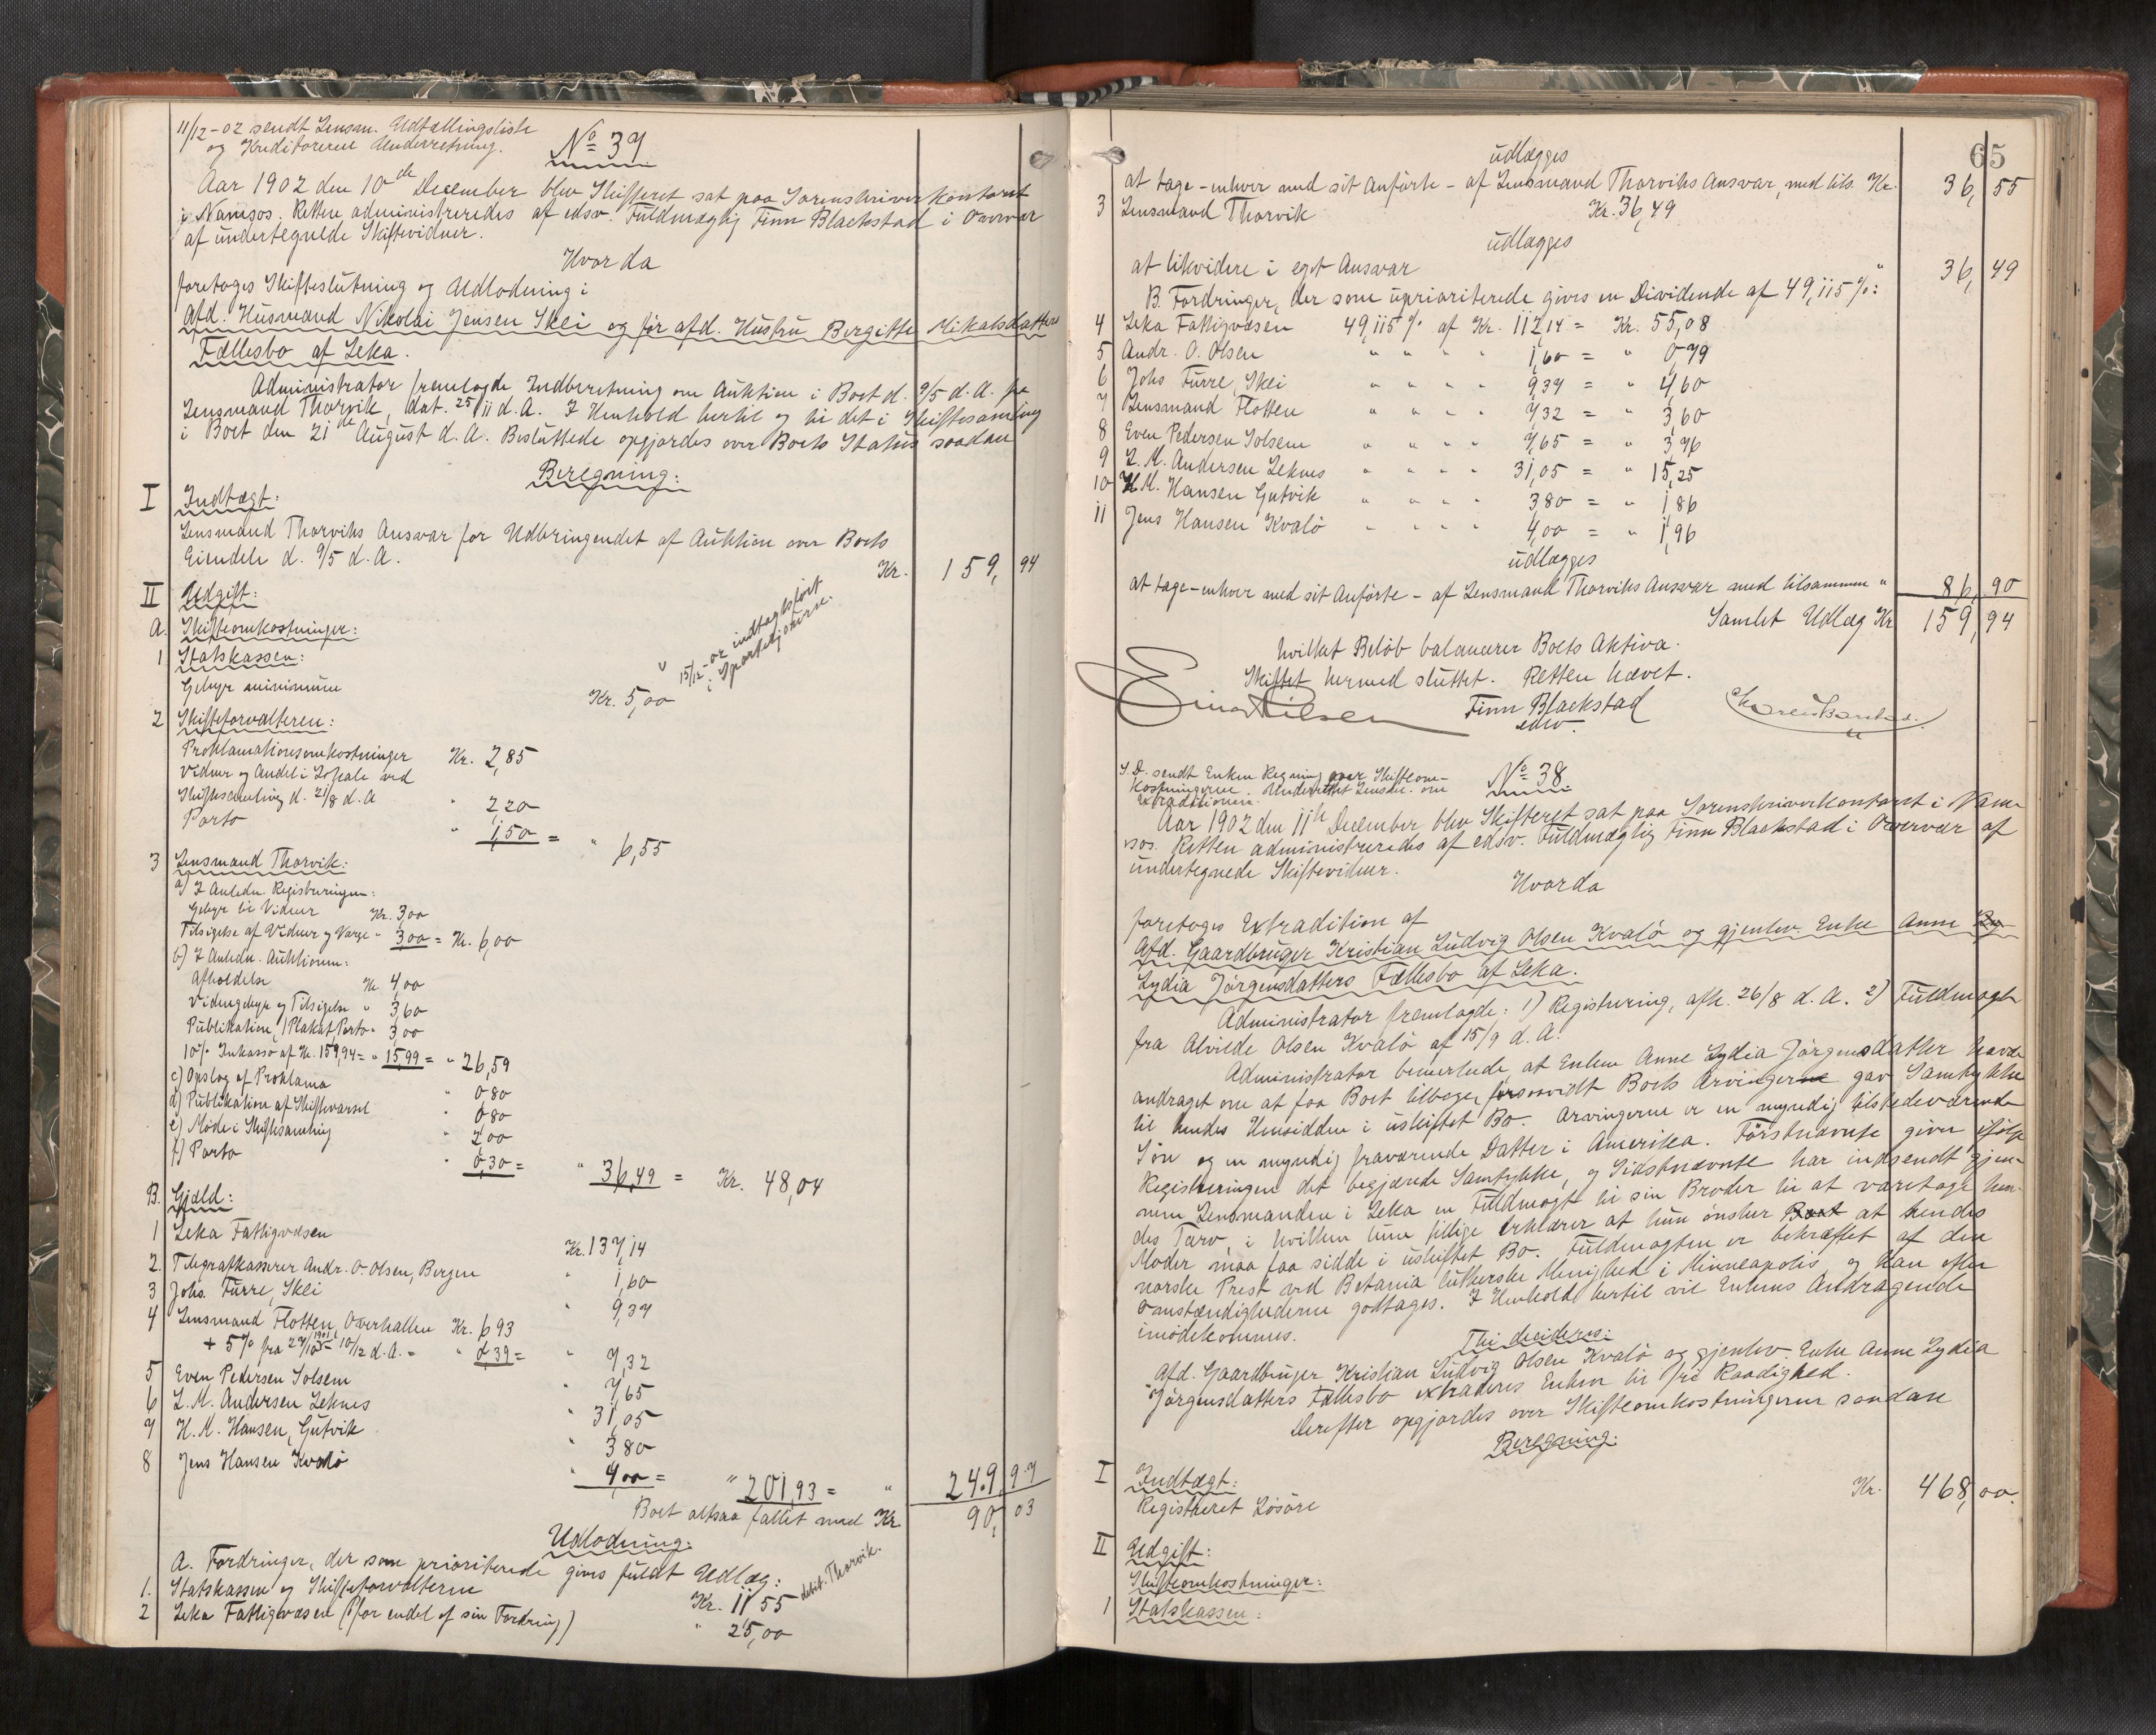 11/12-02 sendt Lensm. Udtællingsliste
og Kreditorerne Underretning.
No 37
Aar 1902 den 10de December blev Skifteret sat paa Sorenskriverkontoret
i Namsos. Retten administreredes af edsv. Fuldmægtig Finn Blackstad i Overvær
af undertegnede Skiftevidner.
Hvorda
foretoges Skifteslutning og Udlodning i
Afd. Husmand Nikolai Jensen Skei og før afd. Hustru Bergitte Mikalsdatters
Fællesbo af Leka.
Administrator fremlagde Indberetning om Auktion i Boet d. 9/5 d.A. fra
Lensmand Thorvik, dat. 25/11 d.A. I Henhold hertil og til det i Skiftesamling
i Boet den 21de August d.A. Besluttede opgjordes over Boets Status saadan
Beregning:
I Indtægt:
Lensmand Thorviks Ansvar for Udbringendet af Auktion over Boets
Eiendele d. 9/5 d.A. Kr. 159,94
II Udgift:
A. Skifteomkostninger:
1 Statskassen:
Gebyr minimum Kr. 5,00
15/12-02 indtægtsført
i Sporteljournse.
2 Skifteforvalteren:
Proklamationsomkostninger Kr. 2,85
Vidner og Andel i Lokale ved
Skiftesamling d. 21/8 d.A " 2 20
Porto " 1,50 = " 6,55
3 Lensmand Thorvik:
a) I Anledn. Registreringen:
Gebyr til Vidner Kr. 3,00
Tilsigelse af Vidner og Værge " 3,00 = Kr. 6,00
b) I Anledn. Auktionen:
Afholdelse Kr. 4,00
Vidnegebyr og Tilsigelse " 3,60
Publikation, Plakat, Porto " 3,00
10% Inkasso af Kr. 159,94 = " 15,99 = " 26,59
c) Opslag af Proklama " 0 80
d) Publikation af Skiftevarsel " 0,80
e) Møde i Skiftesamling " 2,00
f) Porto " 0,30 = " 36,49 = Kr. 48,04
B. Gjæld:
1 Leka Fattigvæsen Kr. 137,14
2. Telegrafkasserer Andr. O. Olsen, Bergen " 1,60
3 Johs. Furre, Skei " 9,37
4 Lensmand Flotten, Overhallen Kr. 6 93
+ 5% fra 27/10 1901 - 10/12 d.A. = " 0,39 = " 7,32
5 Even Pedersen Solsem " 7,65
6 L.M. Andersen Leknes " 31,05
7 H.M. Hansen, Gutvik " 3 80
8 Jens Hansen Kvalø " 4,00 = " 201,93 = " 249,97
Boet altsaa fallit med Kr. 90,03
Udlodning:
A. Fordringer, der som prioriterede gives fuldt Udlæg:
1. Statskassen og Skifteforvalteren Kr. 11 55 debit. Thorvik.
2 Leka Fattigvæsen (for endel af sin Fordring) " 25,00
65
udlægges
at tage - enhver med sit Anførte - af Lensmand Thorviks Ansvar, med tils. Kr. 36,55
3 Lensmand Thorvik Kr. 36,49
udlægges
at likvidere i eget Ansvar " 36,49
B. Fordringer, der som uprioriterede gives en Dividende af 49,115%:
4 Leka Fattigvæsen 49,115% af Kr. 112,14 = Kr. 55,08
5 Andr. O. Olsen " " " " 1,60 = " 0,79
6 Johs Furre, Skei " " " " 9,37 = " 4,60
7 Lensmand Flotten " " " " 7,32 = " 3,60
8 Even Pedersen Solsem " " " " 7,65 = " 3,76
9 L.M. Andersen Leknes " " " " 31,05 = " 15,25
10 H.M. Hansen Gutvik " " " " 3,80 = " 1,86
11 Jens Hansen Kvalø " " " " 4,00 = " 1,96
udlægges
at tage - enhver med sit Anførte - af Lensmand Thorviks Ansvar med tilsammen " 86,90
Samlet Udlæg Kr 159,94
hvilket Beløb balancerer Boets Aktiva.
Skiftet hermed sluttet. Retten hævet.
Einar Nilsen Finn Blackstad
edsv.
S.D. sendt Enken Regning over Skifteom-
kostningerne. Underrettet Lensm. om
Extraditionen.
No 38
Aar 1902 den 11te December blev Skifteret sat paa Sorenskriverkontoret i Nam-
sos. Retten administreredes af edsv. Fuldmægtig Finn Blackstad i Overvær af
undertegnede Skiftevidner.
Hvorda
foretoges Extradition af
Afd. Gaardbruger Kristian Ludvig Olsen Kvalø og gjenlev. Enke Anne
Lydia Jørgensdatters Fællesbo af Leka.
Administrator fremlagde: 1) Registrering, afh. 26/8 d.A. 2) Fuldmagt
fra Alvilde Olsen Kvalø af 15/9 d.A.
Administrator bemerkede, at Enken Anne Lydia Jørgensdatter havde
andraget om at faa Boet tilbage, forsaavidt Boets Arvinger gav Samtykke
til hendes Hensidden i uskiftet Bo. Arvingerne er en myndig tilstedeværende
Søn og en myndig fraværende Datter i Amerika. Førstnævnte giver ifølge
Registreringen det begjærede Samtykke, og Sidstnævnte har indsendt gjen-
nem Lensmanden i Leka en Fuldmagt til sin Broder til at varetage hen-
des Tarv, i hvilken hun tillige erklærer at hun ønsker at hendes
Moder maa faa sidde i uskiftet Bo. Fuldmagten er bekræftet af den
norske Prest ved Betania lutherske Menighed i Minneapolis, og kan efter
Omstændighederne godtages. I Henhold hertil vil Enkens Andragende
imødekommes.
Thi decideres:
Afd. Gaardbruger Kristian Ludvig Olsen Kvalø og gjenlev. Enke Anne Lydia
Jørgensdatters Fællesbo extraderes Enken til fri Raadighed.
Derefter opgjordes over Skifteomkostningerne saadan
Beregning:
I Indtægt:
Registreret Løsøre Kr. 468,00.
II Udgift:
Skifteomkostninger:
1 Statskassen: